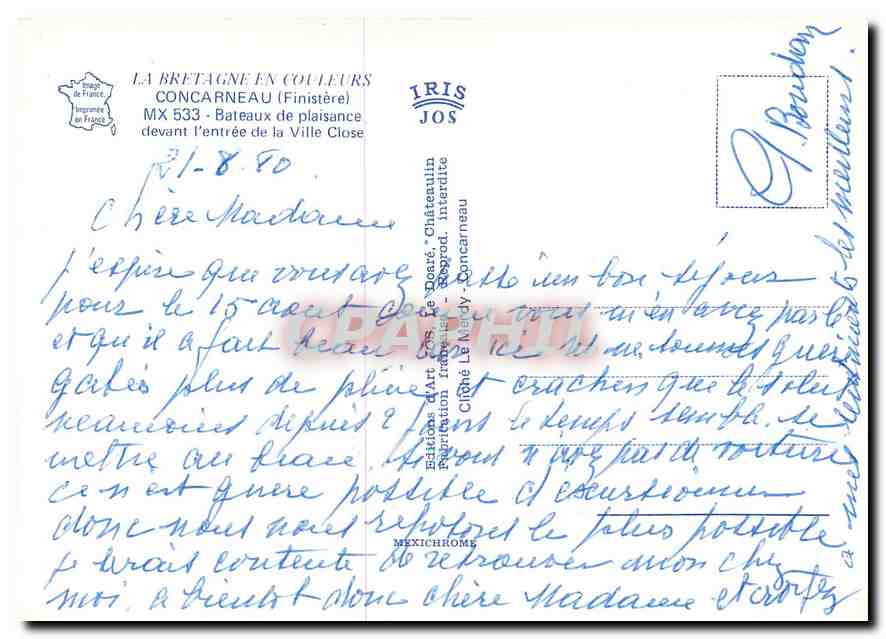 Image
de France.
Imprimée
en France
LA BRETAGNE EN COULEURS
CONCARNEAU (Finistère)
MX 533 - Bateaux de plaisance
devant l'entrée de la Ville Close
IRIS
JOS
Editions d'Art JOS, Le Doaré, Châteaulin
Fabrication française - Reprod. interdite
Cliché Le Merdy - Concarneau
MEXICHROME
CPAPHIL
21-8.80
Chère Madame
j'espère que vous avez passé un bon séjour
pour le 15 aout comme vous m'en avez parlé
et qu'il a fait beau ici ne sommes guère
gatés plus de pluie et crachin que de soleil
neanmoins depuis 2 jours le temps semble se
mettre au beau. si vous n'avez pas de voiture
ce n'est guère possible d'excursionner
donc nous nous reposons le plus possible
je serais contente de retrouver mon chez
moi. a bientot donc chère Madame et croyez
a mes sentiments les meilleurs.
G Boudon